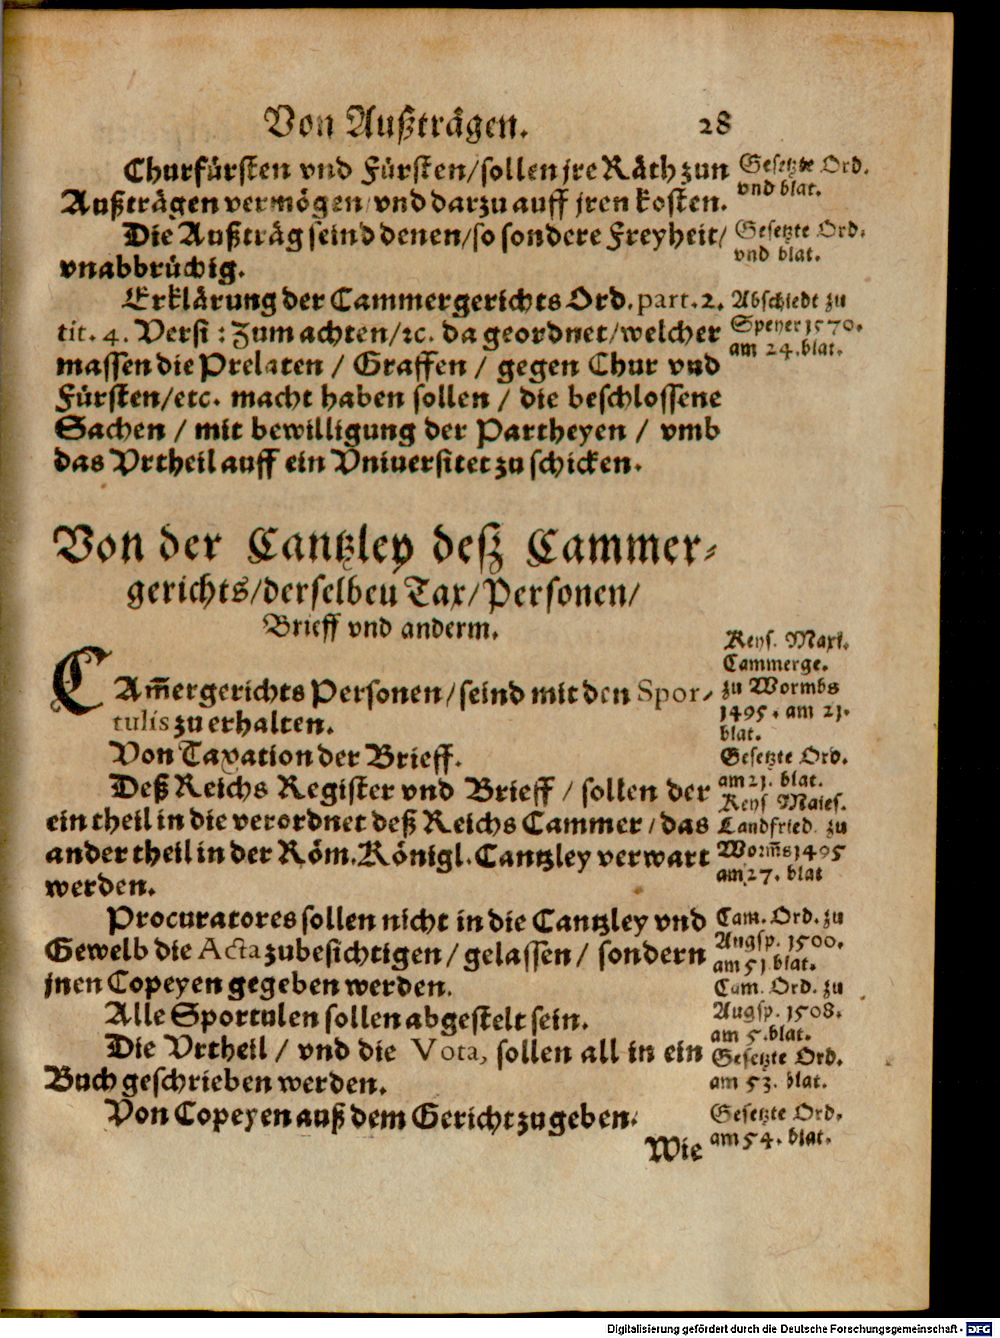 Von Außträgen. 28
Churfürsten vnd Fürsten/sollen jre Räth zun
Außträgen vermögen/vnd darzu auff jren kosten.
Gesetzte Ord.
vnd blat.
Die Außträg seind denen/so sondere Freyheit/
vnabbrüchig.
Gesetzte Ord.
vnd blat.
Erklärung der Cammergerichts Ord. part. 2.
tit. 4. Versi: Zum achten/ꝛc. da geordnet/welcher
massen die Prelaten / Graffen / gegen Chur vnd
Fürsten/etc. macht haben sollen / die beschlossene
Sachen / mit bewilligung der Partheyen / vmb
das Vrtheil auff ein Vniuersitet zu schicken.
Abschiedt zu
Speyer 1570.
am 24. blat.
Von der Cantzley deß Cammer-
gerichts/derselben Tax/Personen/
Brieff vnd anderm.
CAm̃ergerichts Personen/seind mit den Spor-
tulis zu erhalten.
Keys. Maxi.
Cammerge.
zu Wormbs
1495. am 21.
blat.
Von Taxation der Brieff.
Gesetzte Ord.
am 21. blat.
Deß Reichs Register vnd Brieff / sollen der
ein theil in die verordnet deß Reichs Cammer/das
ander theil in der Röm. Königl. Cantzley verwart
werden.
Keys Maies.
Landfried. zu
Worm̃s 1495
am 27. blat
Procuratores sollen nicht in die Cantzley vnd
Gewelb die Acta zubesichtigen/ gelassen/ sondern
jnen Copeyen gegeben werden.
Cam. Ord. zu
Augsp. 1500.
am 51 blat.
Alle Sportulen sollen abgestelt sein.
Cam. Ord. zu
Augsp. 1508.
am 5. blat.
Die Vrtheil / vnd die Vota, sollen all in ein
Buch geschrieben werden.
Gesetzte Ord.
am 53. blat.
Von Copeyen auß dem Gericht zugeben.
Gesetzte Ord.
am 54. blat.
Wie
Digitalisierung gefördert durch die Deutsche Forschungsgemeinschaft - DFG